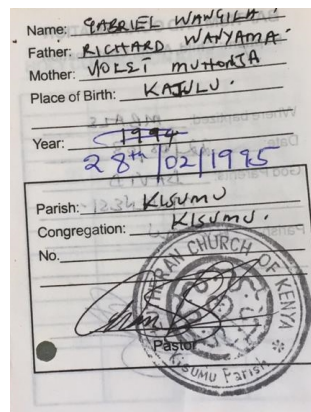 Name: GABRIEL WANGILA
Father: RICHARD WANYAMA
Mother: VOLET MUHONJA
Place of Birth: KAJULU.
Year: 1994
28th/02/1995
Parish: KISUMU
Congregation: KISUMU.
No.
Pastor
THERAN CHURCH OF KENYA
KISUMU Parish